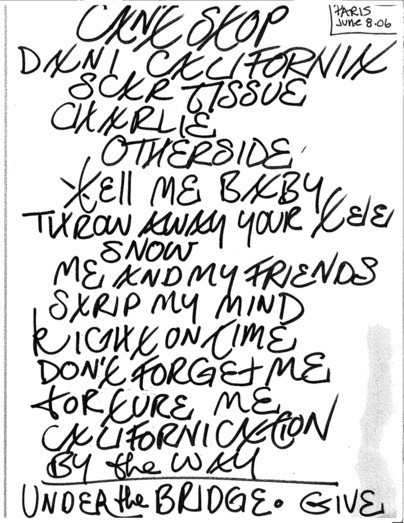 PARIS
JUNE 8.06
CAN'T STOP
DANI CALIFORNIA
SCAR TISSUE
CHARLIE
OTHERSIDE
tell ME BABY
THROW AWAY YOUR TELE
SNOW
ME AND MY FRIENDS
STRIP MY MIND
RIGHT ON TIME
DON'T FORGET ME
TORTURE ME
CALIFORNICATION
BY the WAY
UNDER the BRIDGE. GIVE